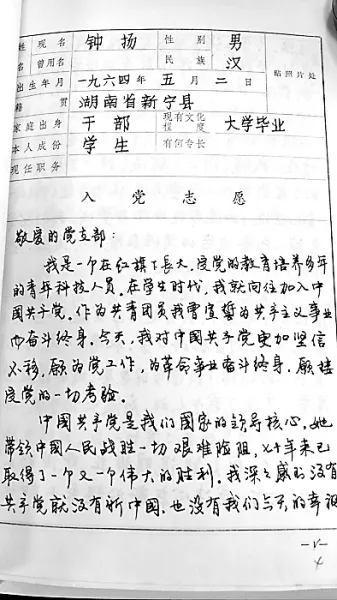 姓 现 名 钟 扬 性 别 男
名 曾用名 民 族 汉
出生年月 一九六四年 五 月 二 日 贴照片处
籍 贯 湖南省新宁县
家庭出身 干部 现有文化程度 大学毕业
本人成份 学生 有何专长
现任职务
入 党 志 愿
敬爱的党支部：
我是一个在红旗下长大，受党的教育培养多年
的青年科技人员。在学生时代，我就向往加入中
国共产党。作为共青团员我曾宣誓为共产主义事业
而奋斗终身。今天，我对中国共产党更加坚信
不移，愿为党工作，为革命事业奋斗终身，愿接
受党的一切考验。
中国共产党是我们国家的领导核心，她
带领中国人民战胜一切艰难险阻，七十年来已
取得了一个又一个伟大的胜利。我深深感到没有
共产党就没有新中国，也没有我们今天的幸福
—V—
4